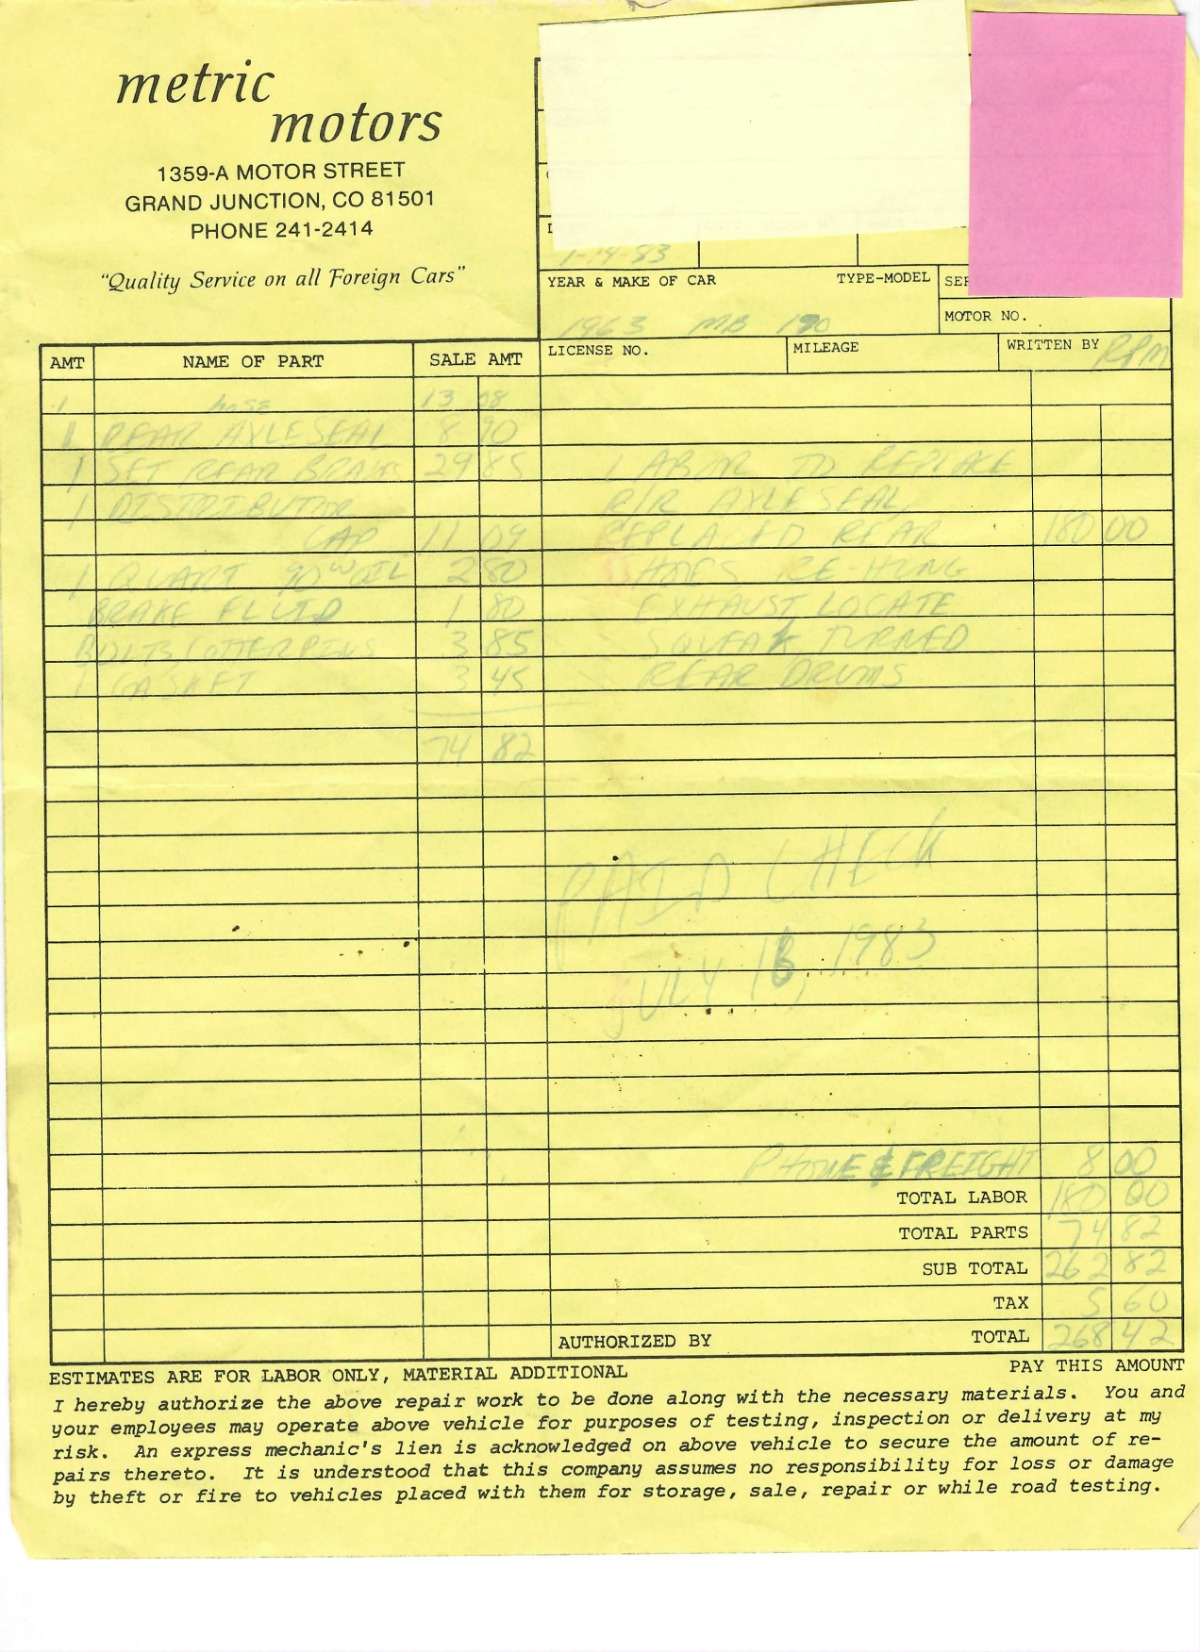 metric
motors
1359-A MOTOR STREET
GRAND JUNCTION, CO 81501
PHONE 241-2414
"Quality Service on all Foreign Cars"
YEAR & MAKE OF CAR TYPE-MODEL SER
1963 MB 190
MOTOR NO.
LICENSE NO. MILEAGE WRITTEN BY RPM
AMT NAME OF PART SALE AMT
1 hose 13 08
1 REAR AXLE SEAL 8 90
1 SET REAR BRAKES 29 85 LABOR TO REPLACE
1 DISTRIBUTOR R/R AXLE SEAL,
CAP 11 09 REPLACED REAR 180 00
1 QUART 90W OIL 2 80 HOSES RE-HUNG
BRAKE FLUID 1 80 EXHAUST LOCATE
BOLTS COTTER PINS 3 85 SQUEAK TURNED
1 GASKET 3 45 REAR DRUMS
74 82
PAID CHECK
JULY 1983
PHONE & FREIGHT 8 00
TOTAL LABOR 180 00
TOTAL PARTS 74 82
SUB TOTAL 262 82
TAX 5 60
AUTHORIZED BY TOTAL 268 42
ESTIMATES ARE FOR LABOR ONLY, MATERIAL ADDITIONAL PAY THIS AMOUNT
I hereby authorize the above repair work to be done along with the necessary materials. You and
your employees may operate above vehicle for purposes of testing, inspection or delivery at my
risk. An express mechanic's lien is acknowledged on above vehicle to secure the amount of re-
pairs thereto. It is understood that this company assumes no responsibility for loss or damage
by theft or fire to vehicles placed with them for storage, sale, repair or while road testing.